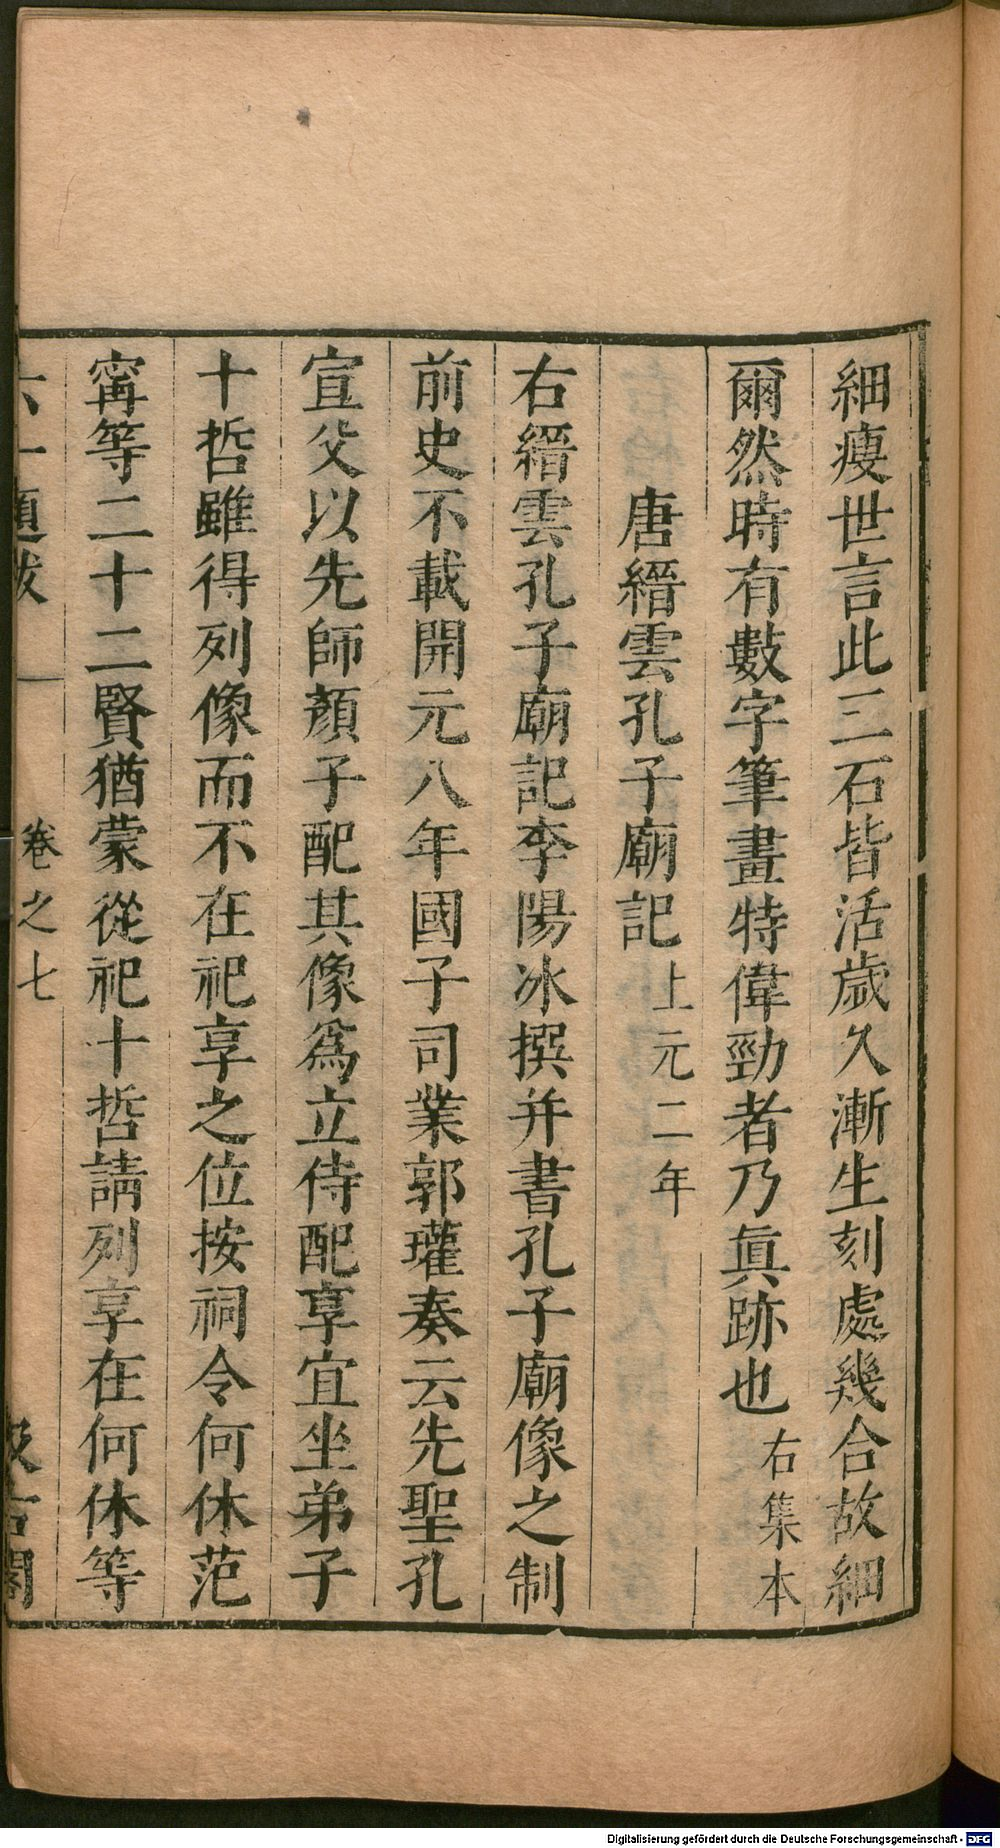 細瘦世言此三石皆活歲久漸生刻處幾合故細
爾然時有數字筆畫特偉勁者乃眞跡也右集本
唐縉雲孔子廟記上元二年
右縉雲孔子廟記李陽冰撰并書孔子廟像之制
前史不載開元八年國子司業郭瓘奏云先聖孔
宣父以先師顏子配其像爲立侍配享宜坐弟子
十哲雖得列像而不在祀享之位按祠令何休范
甯等二十二賢猶蒙從祀十哲請列享在何休等
六一題跋 卷之七 汲古閣
Digitalisierung gefördert durch die Deutsche Forschungsgemeinschaft - DFG